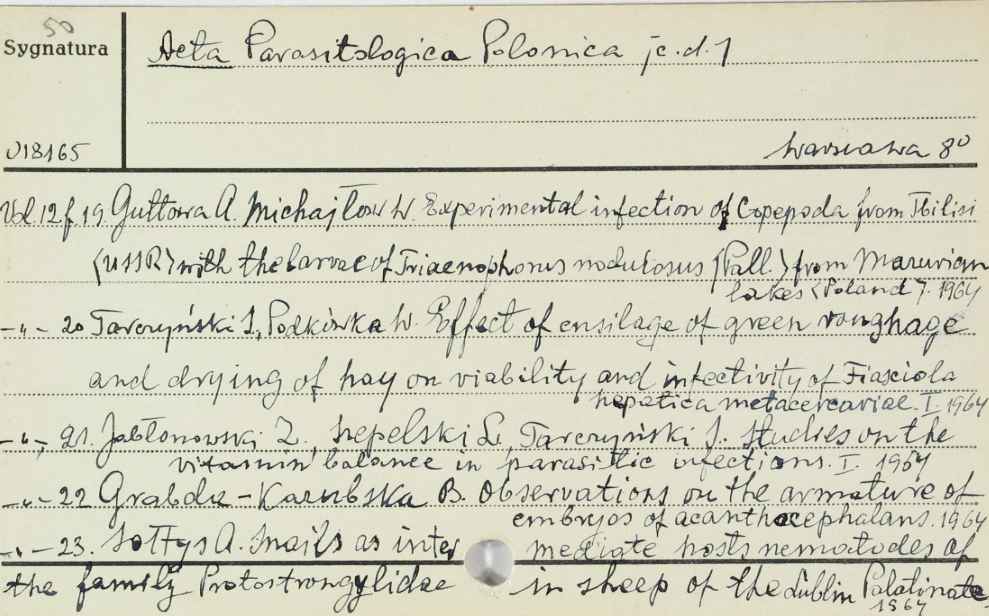 50
Sygnatura
Acta Parasitologica Polonica /c.d./
018165
Warszawa 8°
Vol. 12 f. 19. Guttowa A. Michajłow W. Experimental infection of Copepoda from Tbilisi
(USSR) with the larvae of Triaenophorus nodulosus (Pall.) from Mazurian
lakes (Poland). 1964
-"- 20 Tarczyński S., Podkówka W. Effect of ensilage of green roughage
and drying of hay on viability and infectivity of Fiasciola
hepatica metacercariae. I. 1964
-"- 21. Jabłonowski Z., Sepelski L., Tarczyński S. Studies on the
vitamin balance in parasitic infections. I. 1964
-"- 22 Grabda-Kazubska B. Observations on the armature of
embryos of acanthocephalans. 1964
-"- 23. Sołtys A. Snails as intermediate hosts nematodes of
the family Protostrongylidae in sheep of the Lublin Palatinate
1964